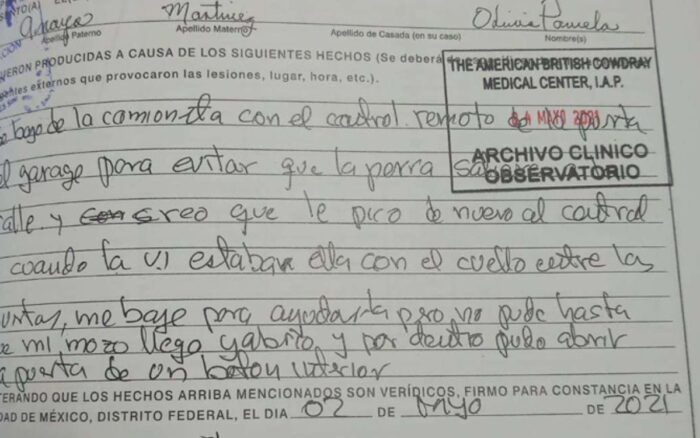 Anaya Martinez Olivia Pamela
Apellido Paterno Apellido Materno Apellido de Casada (en su caso) Nombre(s)
UERON PRODUCIDAS A CAUSA DE LOS SIGUIENTES HECHOS (Se deberá
ntes externos que provocaron las lesiones, lugar, hora, etc.).
THE AMERICAN BRITISH COWDRAY
MEDICAL CENTER, I.A.P.
MAYO 2021
ARCHIVO CLINICO
OBSERVATORIO
e bajo de la camioneta con el control remoto de la porta
l garage para evitar que la perra
alle y creo que le pico de nuevo al control
cuando la vi estaba ella con el cuello entre las
untas, me baje para ayudarla pero no pude hasta
e mi mozo llego y abrio, y por dentro pudo abrir
a puerta de un boton interior
TERANDO QUE LOS HECHOS ARRIBA MENCIONADOS SON VERÍDICOS, FIRMO PARA CONSTANCIA EN LA
DAD DE MÉXICO, DISTRITO FEDERAL, EL DIA 02 DE Mayo DE 2021